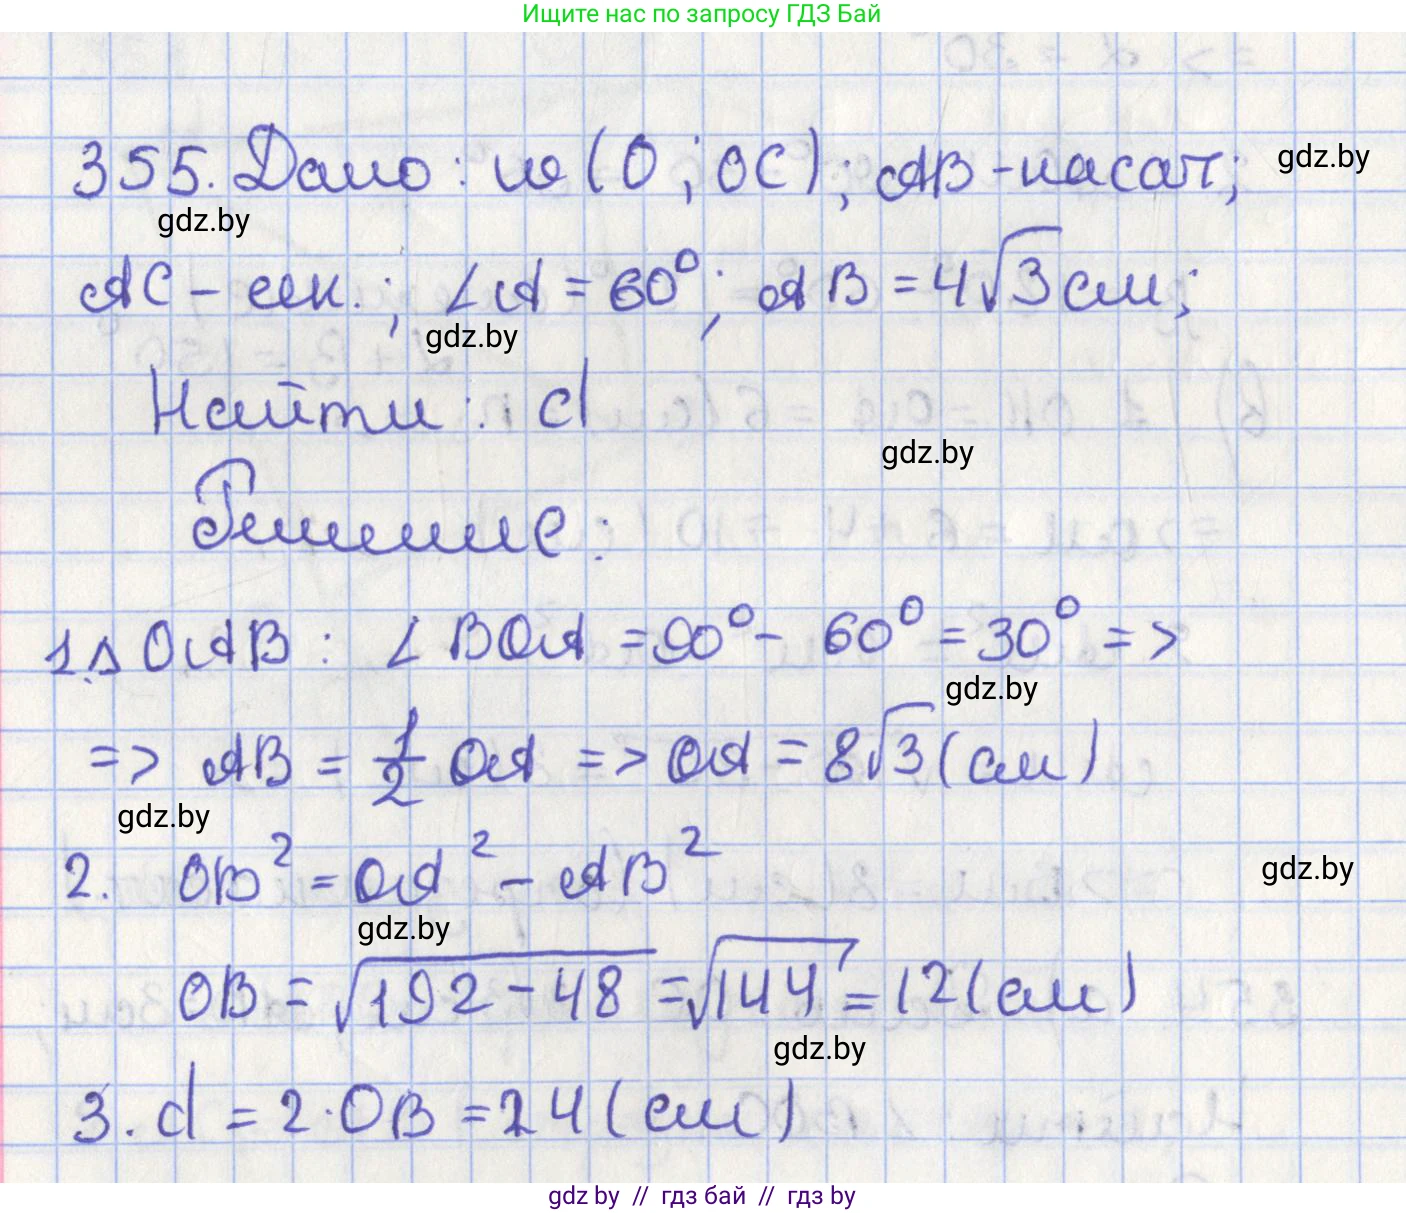 Ищите нас по запросу ГДЗ Бай
355. Дано: w (O; OC); AB - касат;
gdz.by
gdz.by
AC - сек.; ∠A = 60⁰; AB = 4√3 см;
gdz.by
Найти: d
gdz.by
Решение:
1. △ OAB: ∠BOA = 90⁰ - 60⁰ = 30⁰ =>
gdz.by
=> AB = 1/2 OA => OA = 8√3 (см)
gdz.by
2. OB² = OA² - AB²
gdz.by
gdz.by
OB = √192 - 48 = √144 = 12 (см)
gdz.by
3. d = 2·OB = 24 (см)
gdz.by // гдз бай // гдз by